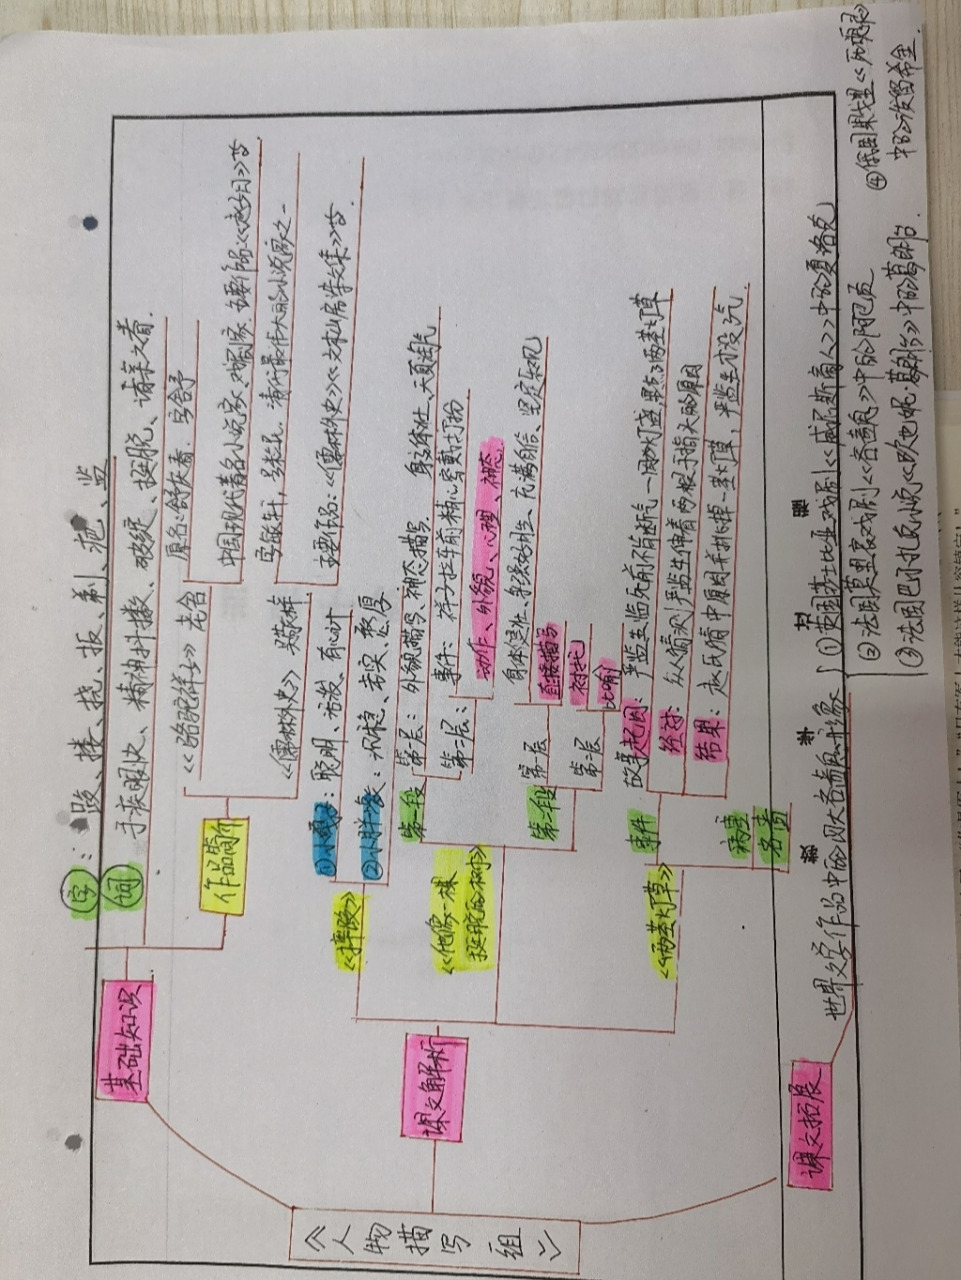 《人物描写一组》
基础知识
字：跤、搂、挠、扳、刹、疤、监
词 手疾眼快、精神抖擞、破绽、挺脱、请亲之看.
作品简介
《骆驼祥子》 老舍
原名:舒庆春. 字舍予
中国现代著名小说家、戏剧家
《儒林外史》 吴敬梓
字敏轩,
清代最伟大的小说家之一
主要作品:《儒林外史》《文木山房诗文集》等.
课文解析
《摔跤》
①小嘎子: 聪明、活泼、有心计
②小胖墩: 沉稳、老实、憨厚
《他像一棵挺脱的树》
第一段
第一层: 外貌描写、神态描写.
第二层:
事件: 祥子拉车前精心穿戴打扮
动作、外貌、心理、神态.
第二段
第一层
直接描写
第二层
衬托
比喻
《两茎灯草》
事件
故事起因: 严监生临死前不肯断气—因为灯盏里点了两茎灯草
经过: 众人猜测严监生伸着两根手指头的原因
结果: 赵氏猜中原因并挑掉一茎灯草, 严监生亦没了气
病重
吝啬
课文拓展
世界文学作品中的四大吝啬鬼形象
①英国莎士比亚戏剧《威尼斯商人》中的夏洛克
②法国莫里哀戏剧《吝啬鬼》中的阿巴贡
③法国巴尔扎克小说《欧也妮·葛朗台》中的葛朗台.
④俄国果戈里《死魂灵》中的泼留希金.